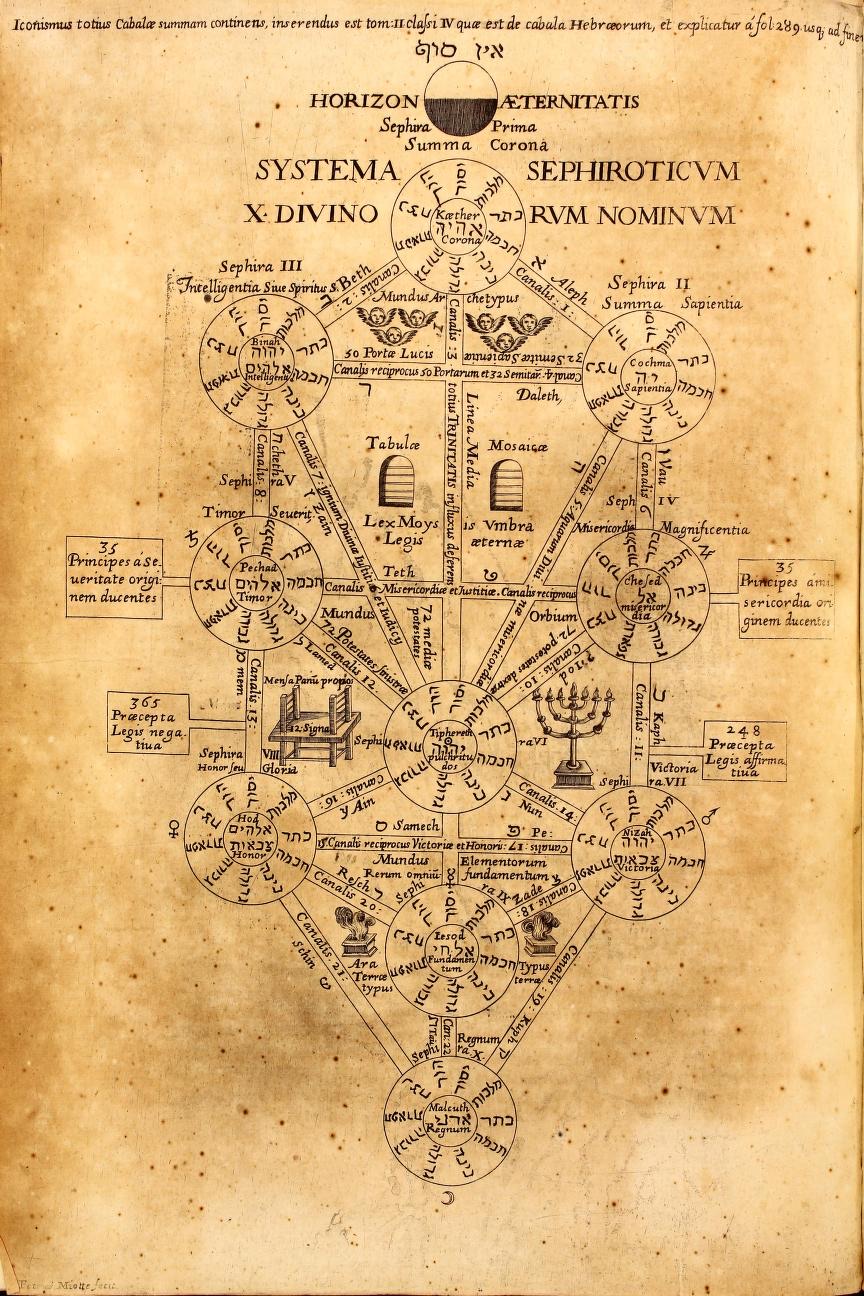 Iconismus totius Cabalæ summam continens, inserendus est tom: II classi IV quæ est de cabala Hebræorum, et explicatur á fol: 289. usq; ad finem
אין סוף
HORIZON ÆTERNITATIS
Sephira Prima
Summa Corona
SYSTEMA SEPHIROTICVM
X DIVINORVM NOMINVM
Kæther
אהיה
Corona
כתר
חכמה
בינה
גדולה
גבורה
תפארת
נצח
הוד
יסוד
מלכות
Sephira III
Intelligentia Siue Spiritus S.
Sephira II
Summa Sapientia
ב Beth
Canalis: 2:
א Aleph
Canalis: 1:
Mundus Archetypus
Canalis: 3
50 Portæ Lucis
32 Semitæ Sapientiæ
Binah
יהוה
אלהים
Intelligentia
Cochma
יה
Sapientia
Canalis reciprocus 50 Portarum et 32 Semitar. Canalis 4
ד Daleth
totius TRINITATIS influxus deferens
Linea Media
Tabulæ Mosaicæ
Lex Moysis Vmbra
Legis æternæ
ח cheth
Canalis: 8:
ז Zain
ה
ו Vau
Canalis 6
Sephira V
Timor Seuerit.
Sephira IV
Misericordia Magnificentia
♄
♃
Pechad
אלהים
Timor
Chesed
אל
misericordia
35
Principes á Seueritate originem ducentes
35
Principes á misericordia originem ducentes
Teth ט
Canalis Misericordiæ et Iustitiæ. Canalis reciprocus
Mundus Orbium
72 mediæ potestates
ל Lamed
72 Potestates sinistræ
Canalis 12
72 potestates dextræ
Canalis: 10:
י Iod
מ mem
Canalis: 13:
כ Kaph
Canalis: 11:
Mensa Panū propos
12 Signa
365
Præcepta
Legis negatiua
248
Præcepta
Legis affirmatiua
Sephira VI
Tiphereth
יהוה
pulchritudos
Sephira VIII
Honor seu Gloria
Victoria
Sephira VII
♀
♂
Canalis: 16:
ע Ain
Canalis. 14:
נ Nun
ס Samech
פ Pe:
15 Canalis reciprocus Victoriæ et Honori: 17: Canalis
Hod
אלהים
צבאות
Honor
Nizah
יהוה
צבאות
Victoria
Mundus Elementorum
Rerum omniū fundamentum
Resch ר
Canalis 20:
Sephira IX
Zade צ
Canalis 18:
Iesod
אל חי
Fundamentum
Ara
Terræ
typus
Typus
terræ
Canalis. 21:
Schin ש
Canalis: 19:
Kuph ק
ת Tau
Can: 22
Regnum
Sephira X.
Malcuth
אדני
Regnum
☾
Miotte fecit